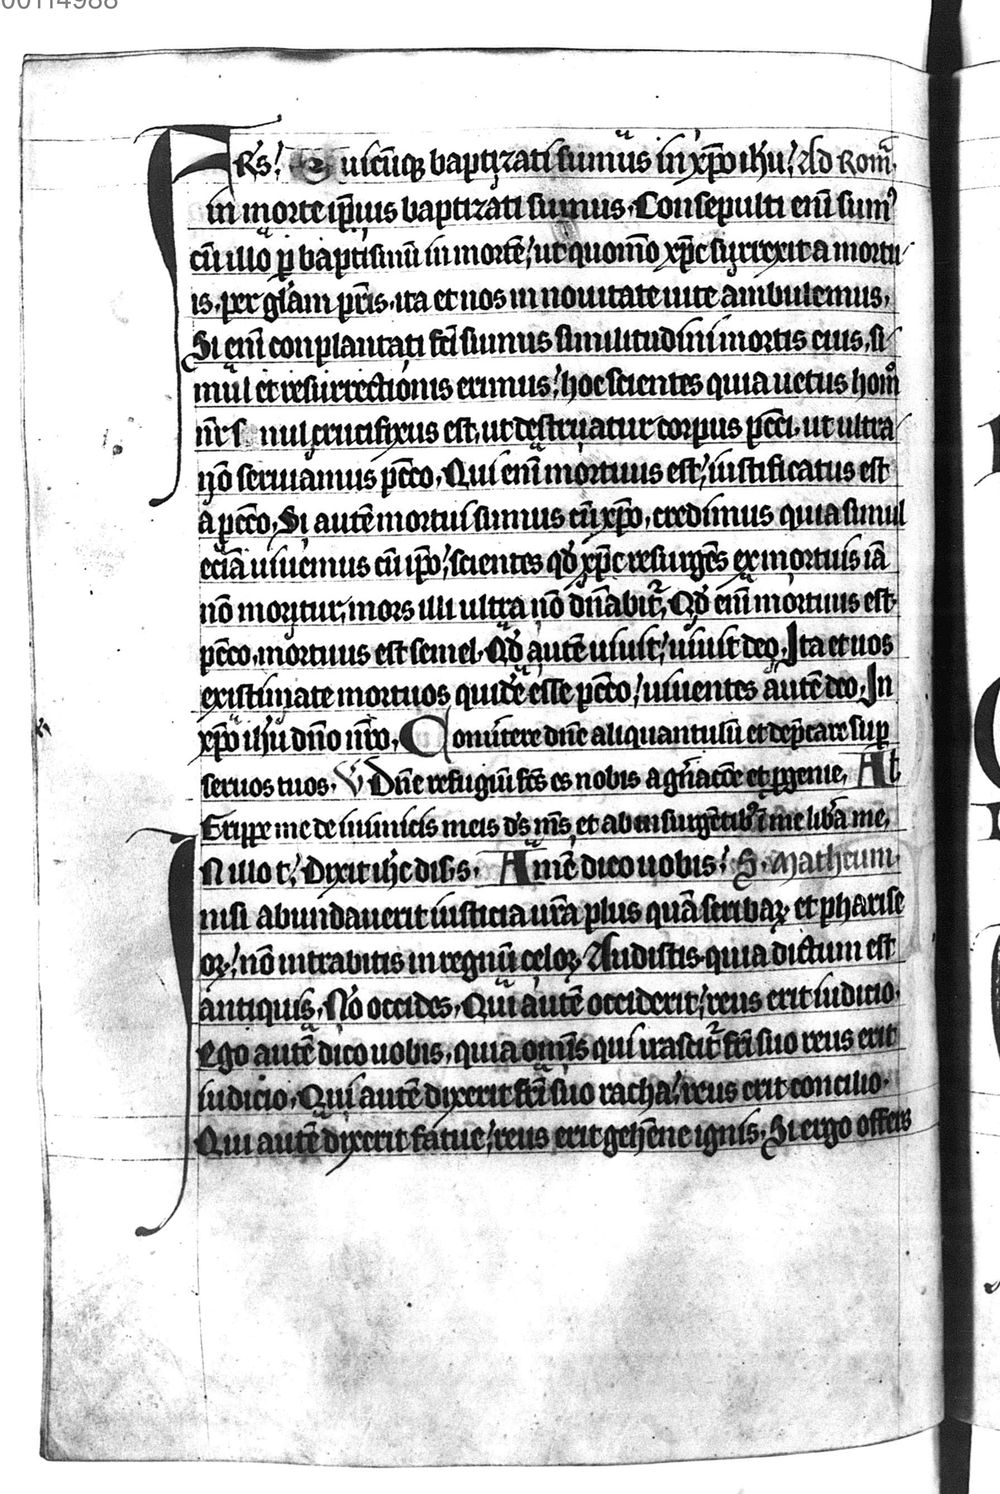 00114988
FRS! Quicūqꝫ baptizati sumus in xp̄o ih̄u! Ad Rom̄.
in morte ip̄ius baptizati sumus. Consepulti eni᷑ sumꝰ
cū illo ꝑ baptismū in mortē! ut quom̊o xp̄c surrexit a mortu
is. per gl̄am pr̄is. ita et nos in nouitate uite ambulemus.
Si eni᷑ conplantati fc̄i sumus similitudini mortis eius. si
mul et resurrectionis erimus! hoc scientes quia uetus homo
nr̄ s nul crucifixus est. ut destruatur corpus pc̄ci. ut ultra
nō seruiamus pc̄co. Qui eni᷑ mortuus est! iustificatus est
a pc̄co. Si autē mortui sumus cū xp̄o. credimus quia simul
eciā uiuemus cū ip̄o! scientes qđ xp̄c resurgēs ex mortuis iā
nō moritur, mors illi ultra nō dn̄abit᷑. Qđ eni᷑ mortuus est
pc̄co. mortuus est semel. Qđ autē uiuit! uiuit deo. Ita et uos
existimate mortuos quidē esse pc̄co! uiuentes autē deo. In
xp̄o ih̄u dn̄o nr̄o. Conu̇tere dn̄e aliquantulū et dep̄care sup̱
seruos tuos. V Dn̄e refugiū fc̄s es nobis a gn̄acōe et ꝓgenie. Al
Erippe me de inimicis meis ds̄ ms̄ et ab insurgētibꝰ ī me lib̄a me.
IN illo t̄! Dixit ih̄c dis. s. Amē dico uobis! S. Matheum.
nisi abundauerit iusticia ur̄a plus quā scribaꝝ et pharise
oꝝ! nō intrabitis in regnū celoꝝ. Audistis quia dictum est
antiquis. Nō occides. Qui autē occiderit! reus erit iudicio.
Ego autē dico uobis. quia omīs qui irascit᷑ fr̄i suo reus erit
iudicio. Qui autē dixerit fr̄i suo racha! reus erit concilio.
Qui autē dixerit fatue! reus erit gehēne ignis. Si ergo offers